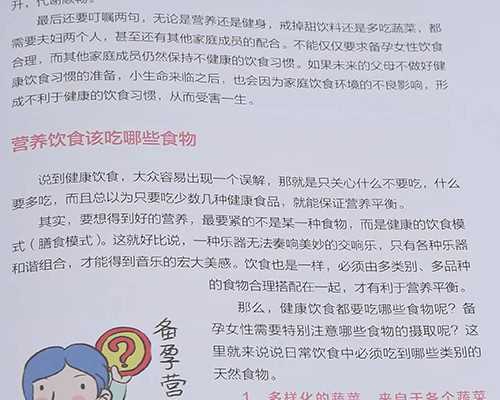 升，代谢顺畅。
最后还要叮嘱两句，无论是营养还是健身，戒掉甜饮料还是多吃蔬菜，都
需要夫妇两个人，甚至还有其他家庭成员的配合。不能仅仅要求备孕女性饮食
合理，而其他家庭成员仍然保持不健康的饮食习惯。如果未来的父母不做好健
康饮食习惯的准备，小生命来临之后，也会因为家庭饮食环境的不良影响，形
成不利于健康的饮食习惯，从而受害一生。
营养饮食该吃哪些食物
说到健康饮食，大众容易出现一个误解，那就是只关心什么不要吃，什么
要多吃，而且总以为只要吃少数几种健康食品，就能保证营养平衡。
其实，要想得到好的营养，最要紧的不是某一种食物，而是健康的饮食模
式（膳食模式）。这就好比说，一种乐器无法奏响美妙的交响乐，只有各种乐器
和谐组合，才能得到音乐的宏大美感。饮食也是一样，必须由多类别、多品种
的食物合理搭配在一起，才有利于营养平衡。
那么，健康饮食都要吃哪些食物呢？备
孕女性需要特别注意哪些食物的摄取呢？这
里就来说说日常饮食中必须吃到哪些类别的
天然食物。
1．多样化的蔬菜，来自于各个蔬菜
备孕营
?